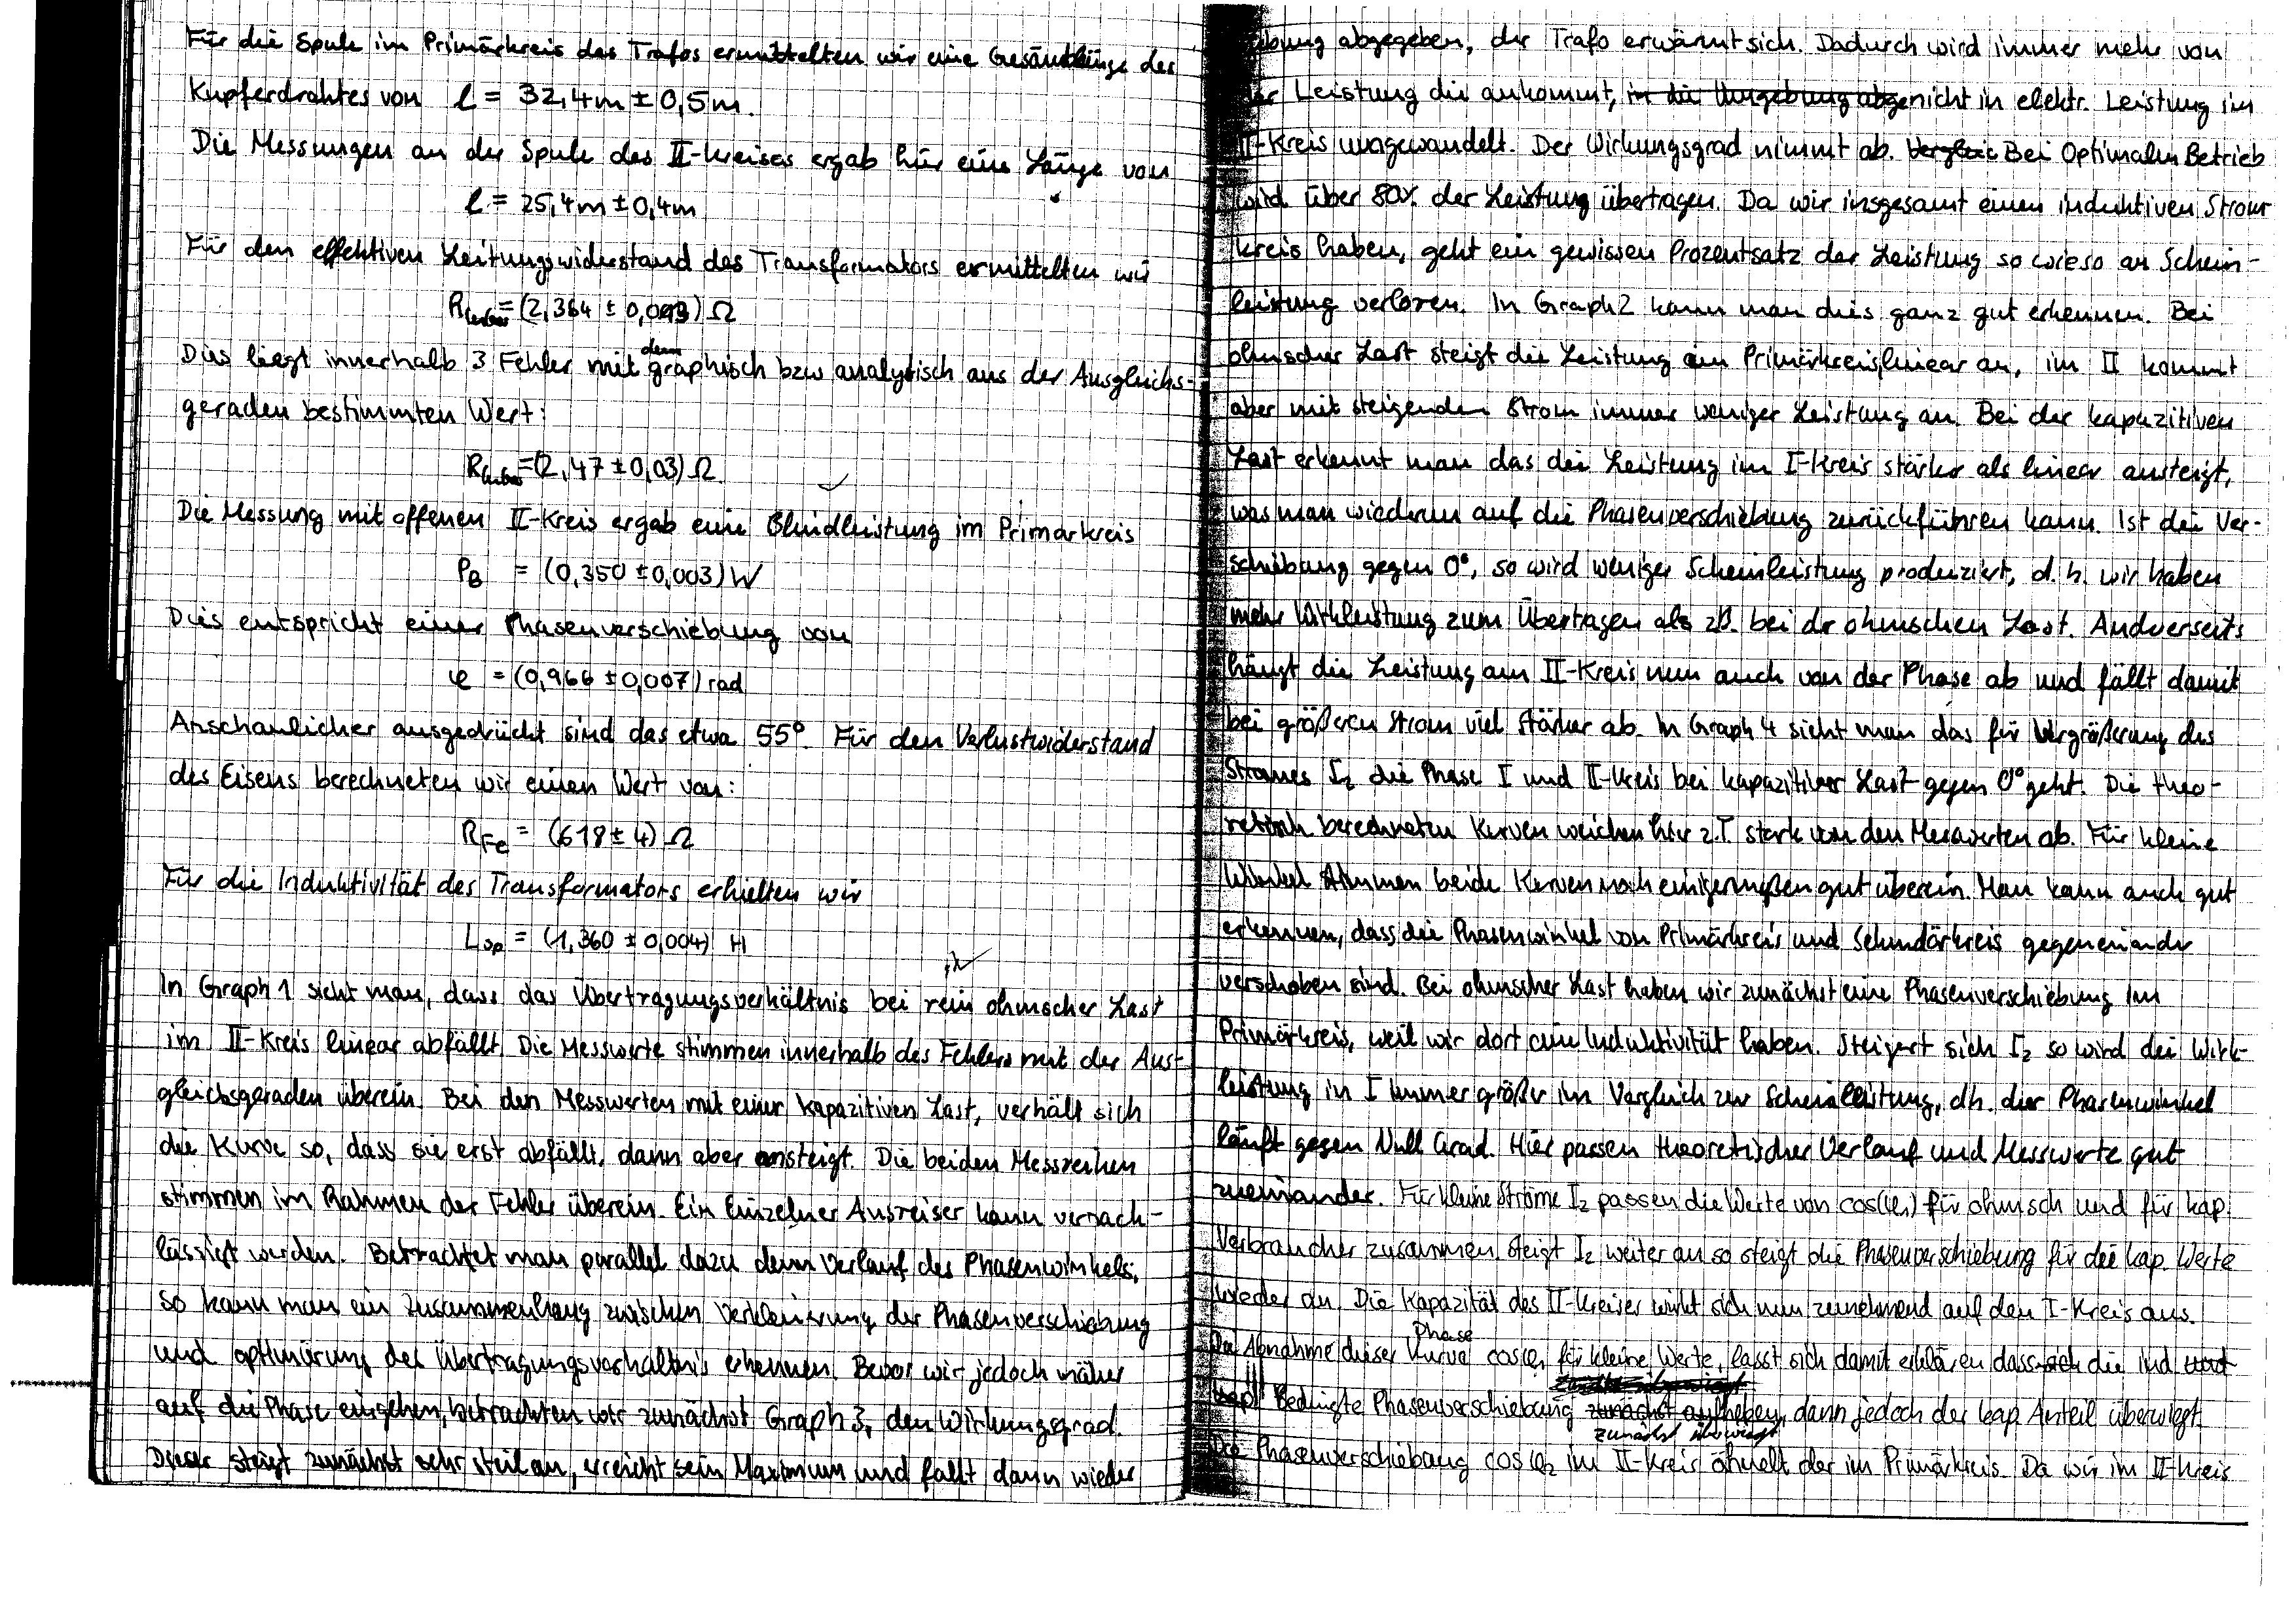 Für die Spule im Primärkreis des Trafos ermittelten wir eine Gesamtlänge des
Kupferdrahtes von l = 32,4m ± 0,5m.
Die Messungen an der Spule des II-Kreises ergab hier eine Länge von
l = 25,4m ± 0,4m
Für den effektiven Leitungswiderstand des Transformators ermittelten wir
= (2,364 ± 0,093) Ω
Dies liegt innerhalb 3 Fehler mit dem graphisch bzw analytisch aus der Ausgleichs-
geraden bestimmten Wert:
= (2,47 ± 0,03) Ω
Die Messung mit offenen II-Kreis ergab eine Blindleistung im Primärkreis
P_B = (0,350 ± 0,003) W
Dies entspricht einer Phasenverschiebung von
φ = (0,966 ± 0,007) rad
Anschaulicher ausgedrückt sind das etwa 55°. Für den Verlustwiderstand
des Eisens berechneten wir einen Wert von:
R_Fe = (618 ± 4) Ω
Für die Induktivität des Transformators erhielten wir
L_Sp = (1,360 ± 0,004) H
In Graph 1 sieht man, dass das Übertragungsverhältnis bei rein ohmscher Last
im II-Kreis linear abfällt. Die Messwerte stimmen innerhalb des Fehlers mit der Aus-
gleichsgeraden überein. Bei den Messwerten mit einer kapazitiven Last, verhält sich
die Kurve so, dass sie erst abfällt, dann aber ansteigt. Die beiden Messreihen
stimmen im Rahmen der Fehler überein. Ein Einzelner Ausreiser kann vernach-
lässigt werden. Betrachtet man parallel dazu denn Verlauf des Phasenwinkels,
so kann man ein Zusammenhang zwischen Verkleinerung der Phasenverschiebung
und optimierung des Übertragungsverhältnis erkennen. Bevor wir jedoch näher
auf die Phase eingehen, betrachten wir zunächst Graph 3, den Wirkungsgrad.
Dieser steigt zunächst sehr steil an, erreicht sein Maximum und fällt dann wieder
abgegeben, der Trafo erwärmt sich. Dadurch wird immer mehr von
der Leistung die ankommt, in die Umgebung abge nicht in elektr. Leistung im
II-Kreis umgewandelt. Der Wirkungsgrad nimmt ab. Bei Optimalen Betrieb
wird über 80% der Leistung übertragen. Da wir insgesamt einen induktiven Strom
kreis haben, geht ein gewissen Prozentsatz der Leistung so wieso an Schein-
leistung verloren. In Graph 2 kann man dies ganz gut erkennen. Bei
ohmscher Last steigt die Leistung im Primärkreis linear an, im II kommt
aber mit steigenden Strom immer weniger Leistung an. Bei der kapazitiven
Last erkennt man das die Leistung im I-Kreis stärker als linear ansteigt,
was man wiederum auf die Phasenverschiebung zurückführen kann. Ist die Ver-
schiebung gegen 0°, so wird weniger Scheinleistung produziert, d.h. wir haben
mehr Wirkleistung zum Übertragen als zB. bei dr ohmschen Last. Andverseits
hängt die Leistung am II-Kreis nun auch von der Phase ab und fällt damit
bei größeren Strom viel stärker ab. In Graph 4 sieht man das für Vergrößerung des
Stromes I₂ die Phase I und II-Kreis bei kapazitiver Last gegen 0° geht. Die theo-
retisch berechneten Kurven weichen hier z.T. stark von den Messwerten ab. Für kleine
Winkel stimmen beide Kurven noch einigermaßen gut überein. Man kann auch gut
erkennen, dass die Phasenwinkel von Primärkreis und Sekundärkreis gegeneinander
verschoben sind. Bei ohmscher Last haben wir zunächst eine Phasenverschiebung im
Primärkreis, weil wir dort eine Induktivität haben. Steigert sich I₂ so wird die Wirk-
leistung in I immer größer im Vergleich zur Scheinleistung, dh. der Phasenwinkel
läuft gegen Null Grad. Hier passen theoretischer Verlauf und Messwerte gut
zueinander. Für kleine Ströme I₂ passen die Werte von cos(φ₁) für ohmsch und für kap.
Verbraucher zusammen. Steigt I₂ weiter an so steigt die Phasenverschiebung für die kap. Werte
wieder an. Die Kapazität des II-Kreises wirkt sich nun zunehmend auf den I-Kreis aus.
Die Abnahme dieser Phase Kurve cos φ₁ für kleine Werte, lasst sich damit erklären dass sich die ind. und
kap. Bedingte Phasenverschiebung zunächst aufheben, zunächst überwiegt dann jedoch der kap. Anteil überwiegt.
Die Phasenverschiebung cos φ₂ im II-Kreis ähnelt der im Primärkreis. Da wir im II-Kreis